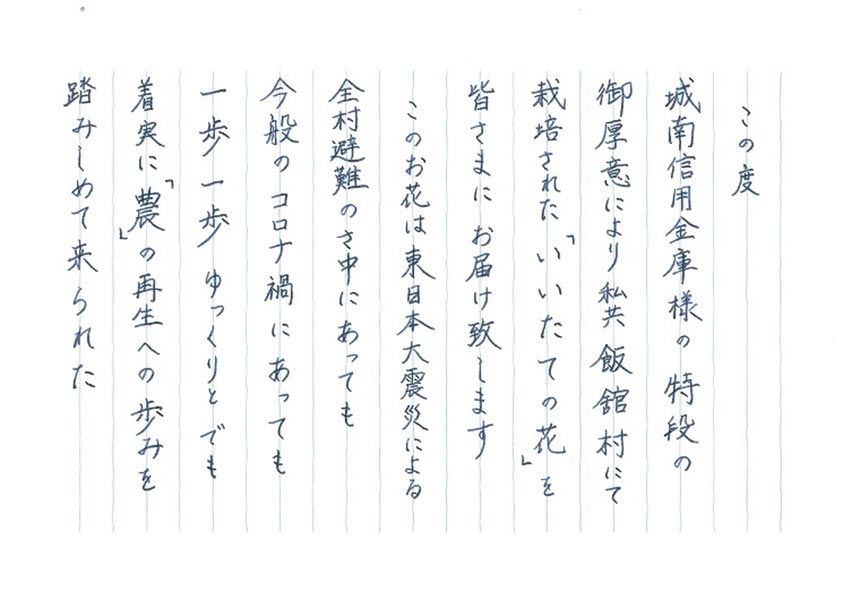 この度
城南信用金庫様の特段の
御厚意により私共飯舘村にて
栽培された「いいたての花」を
皆さまにお届け致します
このお花は東日本大震災による
全村避難のさ中にあっても
今般のコロナ禍にあっても
一歩一歩ゆっくりとでも
着実に「農」の再生への歩みを
踏みしめて来られた